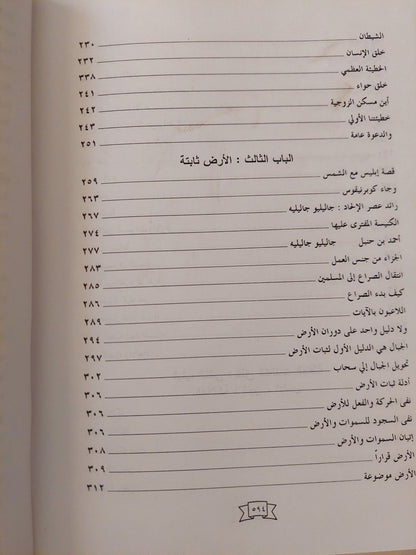 الشيطان ٢٣٠
خلق الإنسان ٢٣٢
الخطيئة العظمي ٢٣٨
خلق حواء ٢٤١
أين مسكن الزوجية ٢٤٢
خطيئتنا الأولي ٢٤٣
والدعوة عامة ٢٥١
الباب الثالث : الأرض ثابتة
قصة إبليس مع الشمس ٢٥٩
وجاء كوبرنيقوس ٢٦٣
رائد عصر الإلحاد : جاليليو جاليليه ٢٦٧
الكنيسة المفترى عليها ٢٧٤
أحمد بن حنبل جاليليو جاليليه ٢٧٧
الجزاء من جنس العمل ٢٨٣
انتقال الصراع إلى المسلمين ٢٨٥
كيف بدء الصراع ٢٨٦
اللاعبون بالآيات ٢٨٩
ولا دليل واحد على دوران الأرض ٢٩٤
الجبال هي الدليل الأول لثبات الأرض ٢٩٧
تحويل الجبال إلي سحاب ٣٠٢
أدلة ثبات الأرض ٣٠٦
نفى الحركة والفعل للأرض ٣٠٦
نفى السجود للسموات والأرض ٣٠٦
إتيان السموات والأرض ٣٠٨
الأرض قراراً ٣٠٩
الأرض موضوعة ٣١٢
٥٩٤